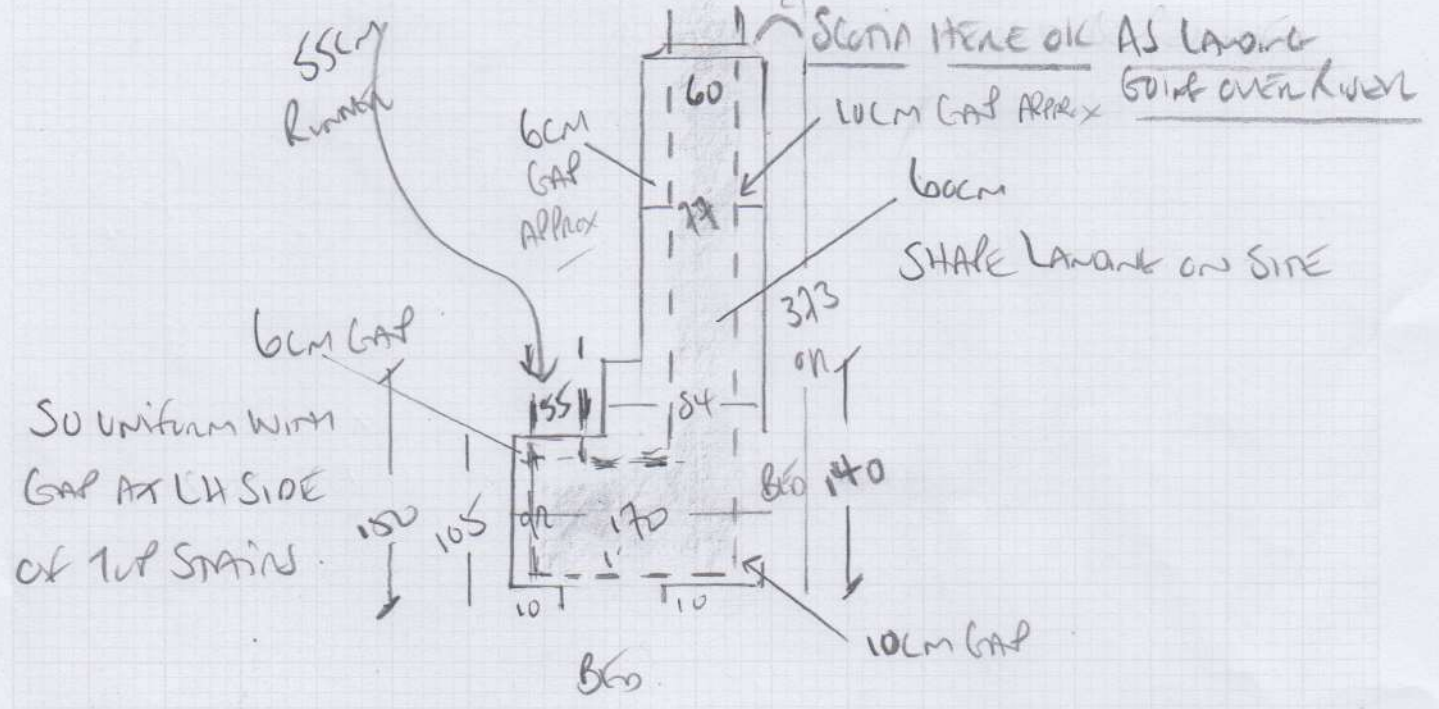 55CM
RUNNER
SCOTIA HERE OK AS LANDING
GOING OVER RISER
60
6CM
GAP
APPROX
10CM GAP APPROX
77
60CM
SHAPE LANDING ON SITE
373
6CM GAP
55
84
SO UNIFORM WITH
GAP AT LH SIDE
OF TOP STAIRS.
105
170
BED
140
10
10
10CM GAP
BED